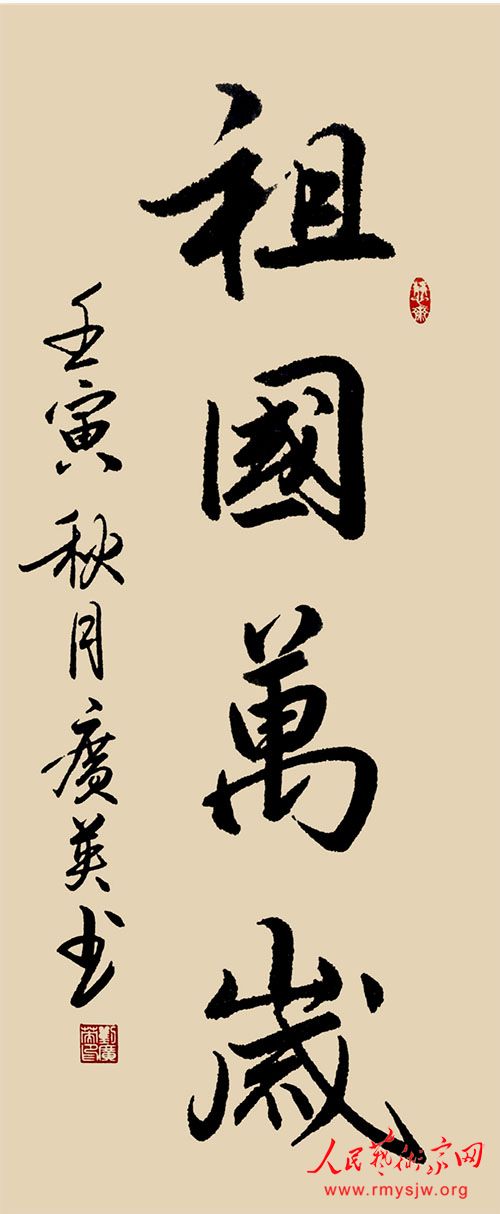 祖國萬歲
壬寅秋月廣英书
人民藝術家网
www.rmysjw.org